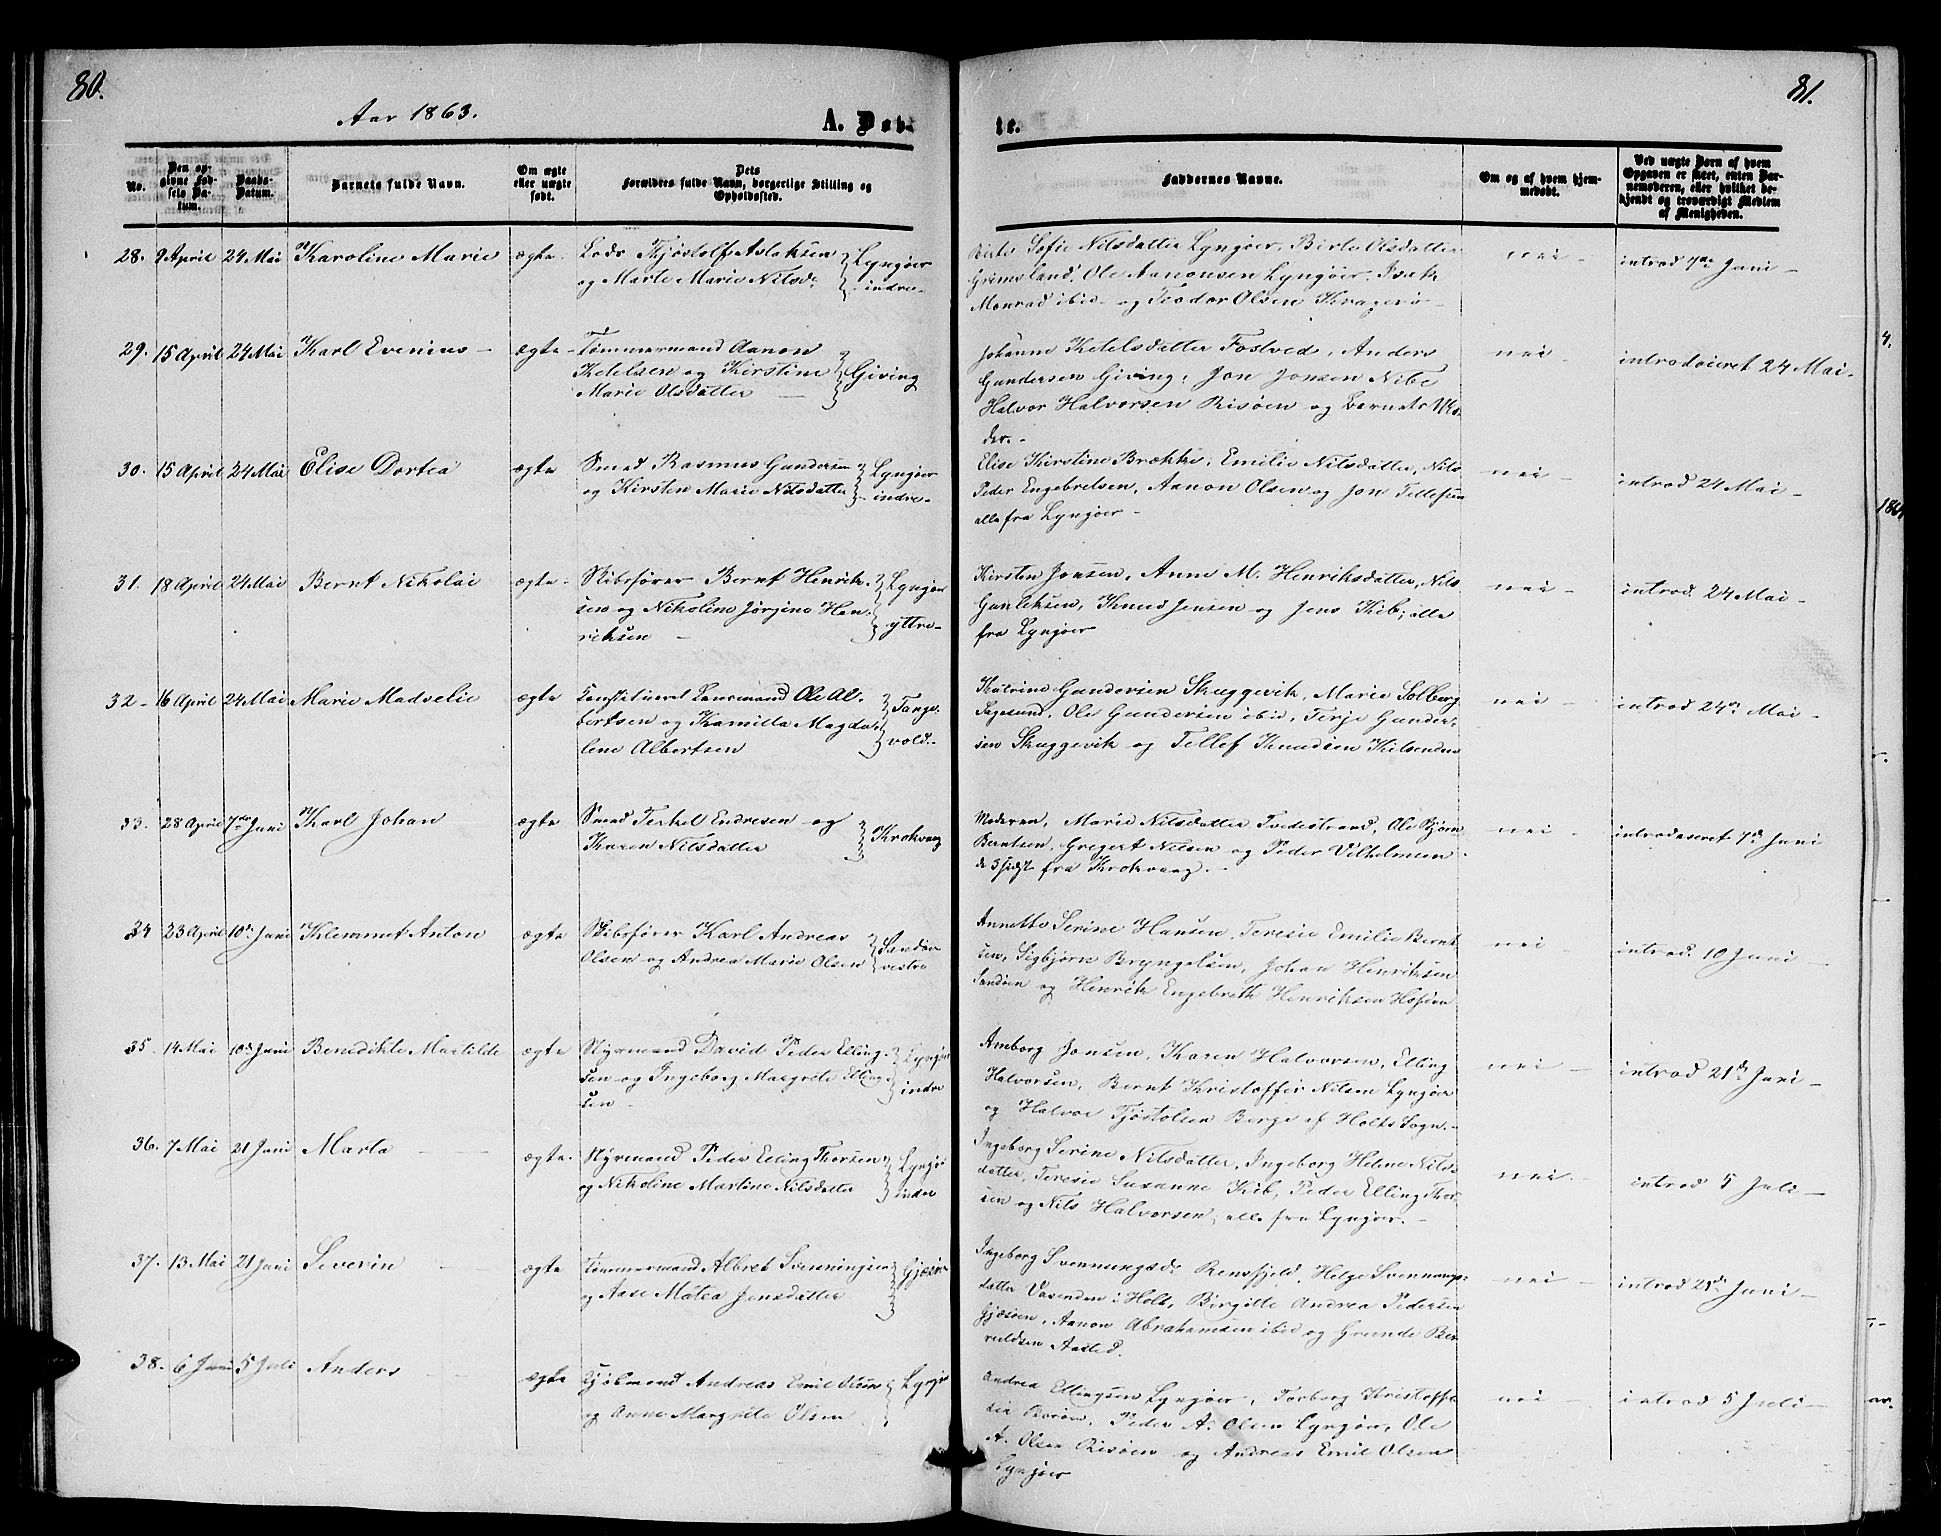 80.
Aar 1863.
A. Døb-
No.
Den opgivne Fødsels Datum.
Daabs-Datum.
Barnets fulde Navn.
Om ægte eller uægte født.
Dets Forældres fulde Navn, borgerlige Stilling og Opholdssted.
28. 9 April 24 Mai Karoline Marie ægte. Lods Tjøstolf Aslaksen Lyngøer
og Marte Marie Nilsd. indre
29. 15 April 24 Mai Karl Evenius ægte Tømmermand Aanon
Ketelsen og Kirstine Giving
Marie Olsdatter
30. 15 April 24 Mai Elise Dortea ægte Smed Rasmus Gundersen Lyngøer
og Kirsten Marie Nilsdatter indre
31. 18 April 24 Mai Bernt Nikolai ægte Skibsfører Bernt Henrik- Lyngøer
sen og Nikoline Jørgine Hen- yttre
riksen
32 16 April 24 Mai Marie Madselie ægte Constitueret Lensmand Ole Al-
bertsen og Kamilla Magda- Tange-
lene Albertsen vold
33. 28 April 7de Juni Karl Johan ægte Smed Terkel Endresen og
Karen Nilsdatter Krokvaag
34 23 April 10de Juni Klemmet Anton ægte Skibsfører Karl Andreas Sandøen
Olsen og Andrea Marie Olsen vestre
35. 14 Mai 10de Juni Benedikte Matilde ægte Styrmand David Peder Elling- Lyngør
sen og Ingeborg Margrete Elling- indre
sen
36. 7 Mai 21 Juni Marta ægte. Styrmand Peder Elling Thorsen Lyngør
og Nikoline Martine Nilsdatter indre
37. 13 Mai 21 Juni Severin ægte Tømmermand Albret Svenningsen Gjæsøen
og Aase Matea Jensdatter
38. 6 Juni 5 Juli Anders ægte Sjømand Andreas Emil Olsen Lyngør
og Anne Margrete Olsen
81.
te.
Faddernes Navne.
Om og af hvem hjemmedøbt.
Ved uægte Børn af hvem Opgaven er skeet, enten Barnemoderen, eller hvilket bekjendt og troværdigt Medlem af Menigheden.
Birte Sofie Nilsdatter Lyngøer, Birte Olsdatter nei introd 7de Juni
Grimsland, Ole Aanonsen Lyngøer, Isak
Monrad ibid. og Teodor Olsen Kragerø
Johanne Ketelsdatter Fostved, Anders nei introduceret 24 Mai
Gundersen Giving, Jon Jonsen Nibe
Halvor Halvorsen Risøen og Barnets Mo-
der.
Elise Kirstine Brække, Emilie Nilsdatter, Nils nei introd 24 Mai
Peder Engebretsen, Aanon Olsen og Jon Tellefsen
alle fra Lyngøer
Kirsten Jonsen, Anne M. Henriksdatter, Nils nei introd. 24 Mai
Gunleksen, Knud Jensen og Jens Kib; alle
fra Lyngøer
Katrine Gundersen Skuggevik, Marie Solberg nei introd 24de Mai
Sagesund, Ole Gundersen ibid, Terje Gunder-
sen Skuggevik og Tellef Knudsen Kilsenden
Moderen, Marie Nilsdatter Tvedestrand, Ole Bjørn nei introduceret 7de Juni
Berntsen, Gregert Nilsen og Peder Vilhelmsen
de 3 sidst fra Krokvaag.
Annette Serine Hansen, Teresie Emilie Bernt- nei introd. 10 Juni
sen, Sigbjørn Bryngelsen, Johan Henriksen
Sandøen og Henrik Engebreth Henriksen Hasøen
Amborg Jonsen, Karen Halvorsen, Elling nei introd 21de Juni
Halvorsen, Bernt Kristoffer Nilsen Lyngøer
og Halvor Tjøstolsen Berge af Holts Sogn.
Ingeborg Serine Nilsdatter, Ingeborg Helene Nils- nei introd 5 Juli
datter, Teresie Susanne Kib, Peder Elling Thor-
sen og Nils Halvorsen; alle fra Lyngøer.
Ingeborg Svenningsd. Rensfjeld, Helge Svennings- nei introd 21de Juni
datter Vasenden i Holt, Birgitte Andrea Pedersen
Gjæsøen, Aanon Abrahamsen ibid og Grunde Ber-
ruldsen Aasted.
Andrea Ellingsen Lyngøer, Torborg Kristoffe- nei introd 5 Juli
Borøen, Peder A. Olsen Lyngør, Ole
A. Olsen Risøen og Andreas Emil Olsen
Lyngøer